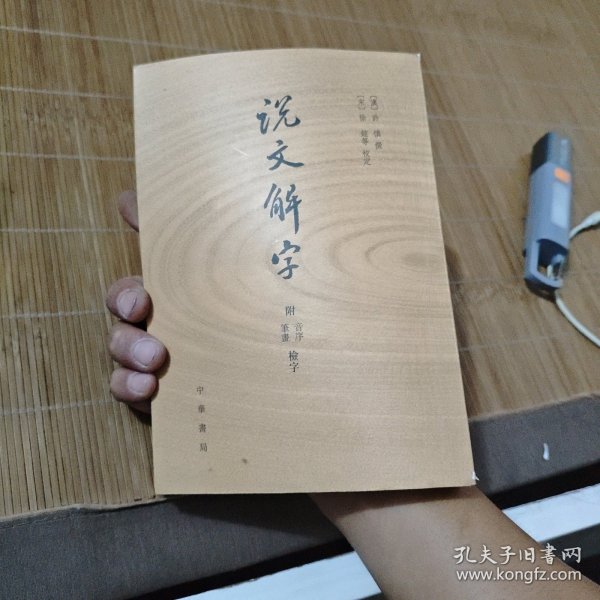 [漢] 許慎 撰
[宋] 徐鉉等 校定
说文解字
附 音序 筆畫 檢字
中華書局
孔夫子旧书网
www.kongfz.com